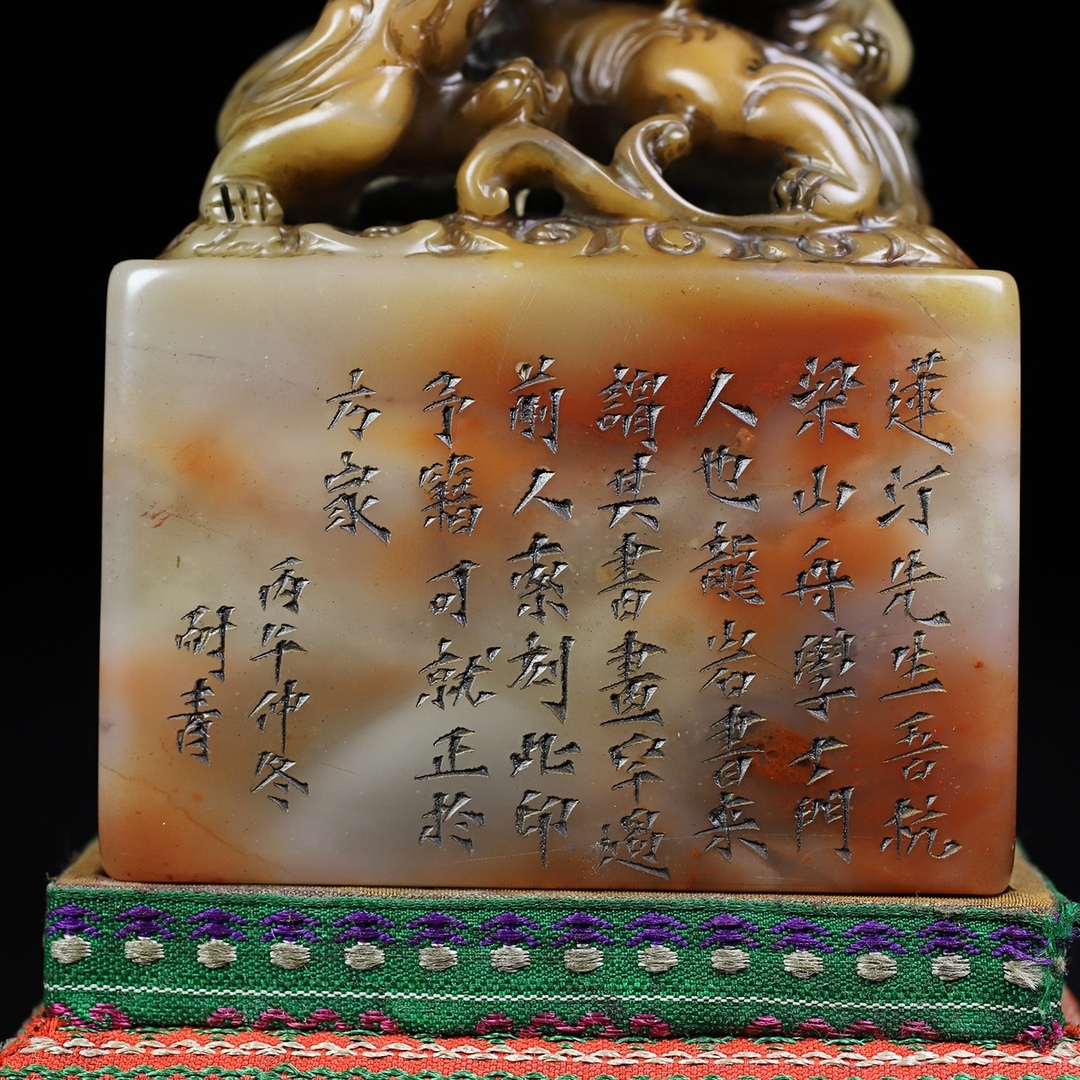 蓮汀先生吾杭
梁山舟學士門
人也龍岩書来
謂其書畫罕遇
前人索刻此印
予籍可就正於
方家
丙午仲冬
耐青